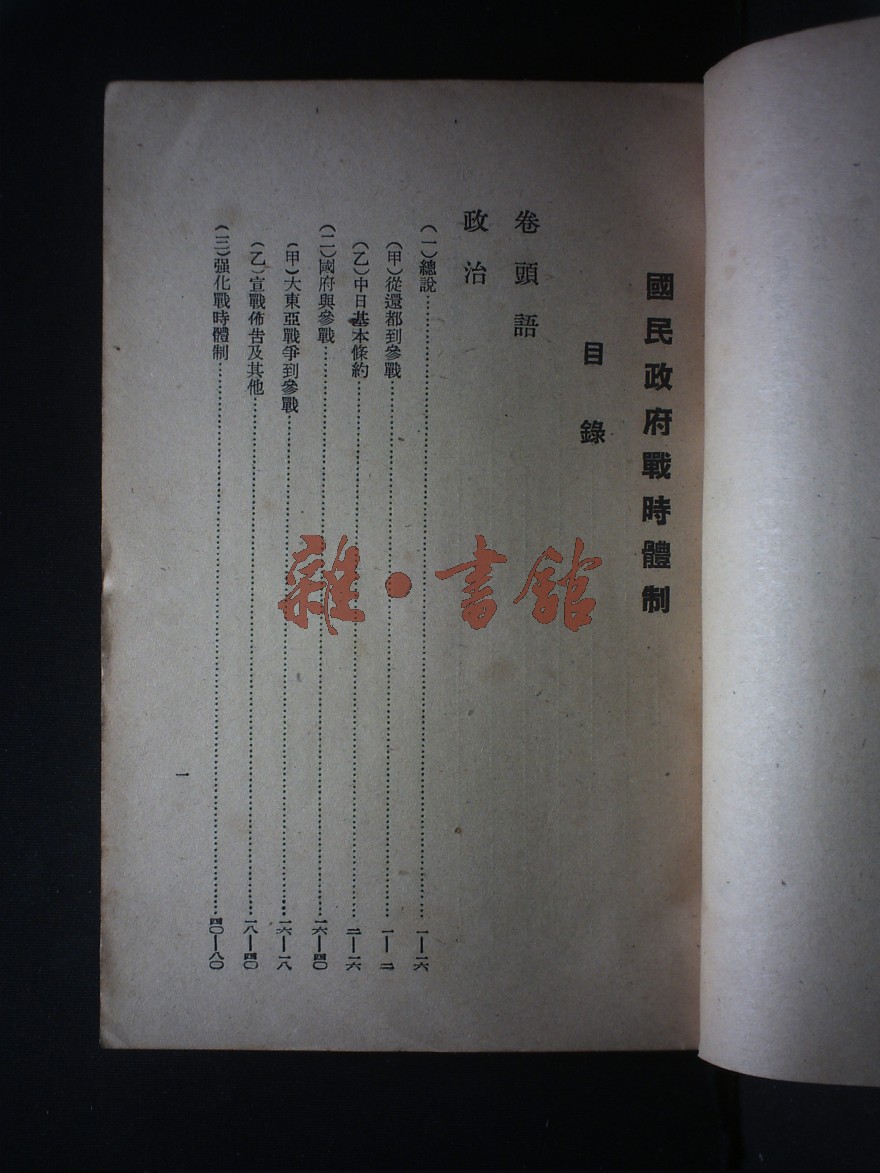 國民政府戰時體制
目錄
卷頭語
政治
(一)總說……一—一六
(甲)從還都到參戰……一—二
(乙)中日基本條約……二—一六
(二)國府與參戰……一六—四〇
(甲)大東亞戰爭到參戰……一六—一八
(乙)宣戰佈告及其他……一八—四〇
(三)强化戰時體制……四〇—八〇
一
雜·書館